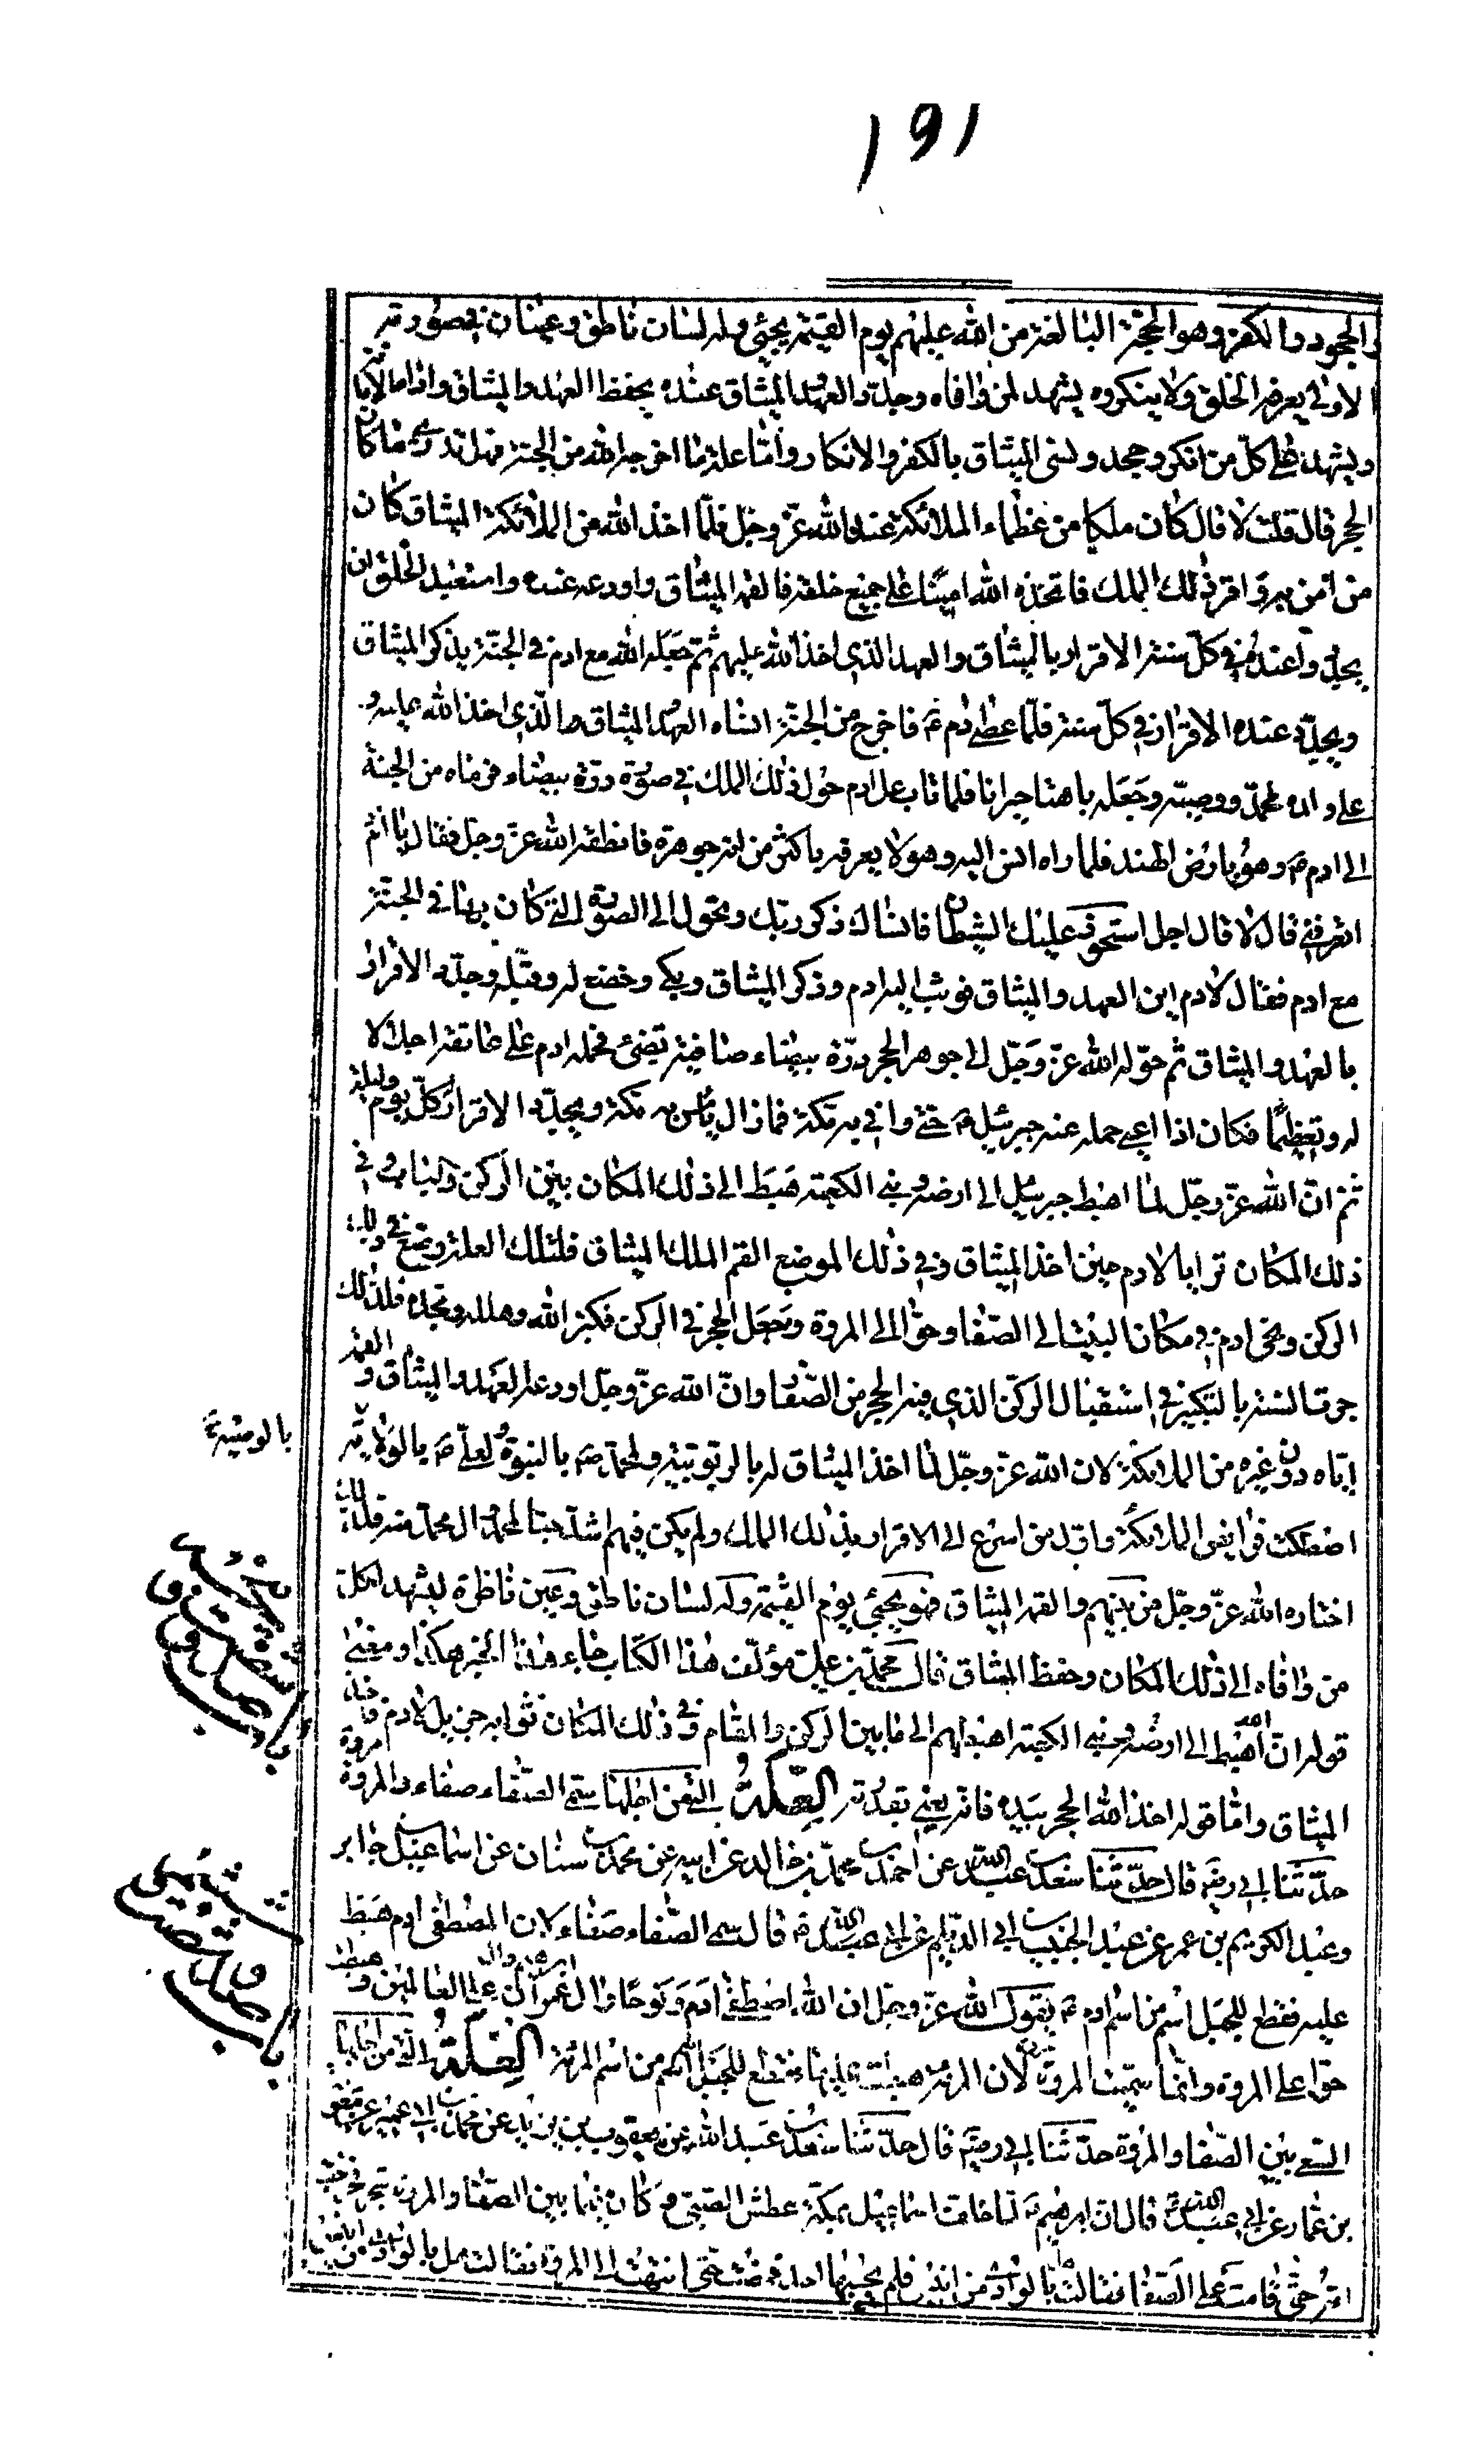 ۱۹۱
والجحود والكفر وهو الحجة البالغة من الله عليهم يوم القيمة يجيئ وله لسان ناطق وعينان في صورته
الاولى يعرفه الخلق ولا ينكروه يشهد لمن وافاه وجدد العهد والميثاق عنده بحفظ العهد والميثاق واداء الامانة
ويشهد على كل من انكر وجحد ونسى الميثاق بالكفر والانكار واما علة ما اخرجه الله من الجنة فهل تدري ما كان
الحجر قال قلت لا قال كان ملكا من عظماء الملائكة عند الله عز وجل فلما اخذ الله من الملائكة الميثاق كان
من امن به واقر ذلك الملك فاتخذه الله امينا على جميع خلقه فالقمه الميثاق واودعه عنده واستعبد الخلق ان
يجددوا عنده في كل سنة الاقرار بالميثاق والعهد الذي اخذ الله عليهم ثم جعله الله مع ادم في الجنة يذكر الميثاق
ويجدد عنده الاقرار في كل سنة فلما عصى ادم ع فاخرج من الجنة انساه العهد والميثاق الذي اخذ الله عليه و
على ولده لمحمد ووصيه وجعله باهتا حيرانا فلما تاب على ادم حول ذلك الملك في صورة درة بيضاء فرماه من الجنة
الى ادم ع وهو بارض الهند فلما راه انس اليه وهو لا يعرفه باكثر من انه جوهرة فانطقه الله عز وجل فقال يا ادم
اتعرفني قال لا قال اجل استحوذ عليك الشيطان فانساك ذكر ربك وتحول الى الصورة التي كان بها في الجنة
مع ادم فقال لادم اين العهد والميثاق فوثب اليه ادم وذكر الميثاق وبكى وخضع له وقبله وجدد الاقرار
بالعهد والميثاق ثم حوله الله عز وجل الى جوهر الحجر درة بيضاء صافية تضئ فحمله ادم على عاتقه اجلالا
له وتعظيما فكان اذا اعيى حمله عنه جبرئيل ع حتى وافى به مكة فما زال يانس به بمكة ويجدد الاقرار كل يوم وليلة
ثم ان الله عز وجل لما اهبط جبرئيل الى ارضه وبنى الكعبة هبط الى ذلك المكان بين الركن والباب وفي
ذلك المكان تراءى لادم حين اخذ الميثاق وفي ذلك الموضع القم الملك الميثاق فلتلك العلة وضع في ذلك
الركن ونحى ادم من مكان البيت الى الصفا وحوا الى المروة وجعل الحجر في الركن فكبر الله وهلله ومجده فلذلك
جرت السنة بالتكبير في استقبال الركن الذي فيه الحجر من الصفا وان الله عز وجل اودعه العهد والميثاق والقمه
اياه دون غيره من الملائكة لان الله عز وجل لما اخذ الميثاق له بالربوبية ولمحمد ص بالنبوة ولعلي ع بالولاية
بالوصية
اصطكت فرايص الملائكة واول من اسرع الى الاقرار بذلك الملك ولم يكن فيهم اشد حبا لمحمد وال محمد منه فلذلك
اختاره الله عز وجل من بينهم والقمه الميثاق فهو يجيئ يوم القيمة وله لسان ناطق وعين ناظرة ليشهد لكل
من وافاه الى ذلك المكان وحفظ الميثاق قال محمد بن علي مؤلف هذا الكتاب جاء هذا الخبر هكذا ومعنى
قوله ان الله اهبط الى ارضه وبنى الكعبة اهبطهم الى ما بين الركن والمقام وفي ذلك المكان ثوابه جزيل لادم فاخذ
الميثاق واما قوله اخذ الله الحجر بيده فانه يعني بقدرته العلة التي من اجلها سمى الصفاء صفاء والمروة مروة
حدثنا ابي رضه قال حدثنا سعد بن عبد الله عن احمد بن محمد بن خالد عن ابيه عن محمد بن سنان عن اسماعيل بن جابر
وعبد الكريم بن عمر عن عبد الحميد بن ابي الديلم عن ابي عبد الله ع قال سمى الصفاء صفاء لان المصطفى ادم هبط
عليه فقطع للجبل اسم من اسم ادم ع بقول الله عز وجل ان الله اصطفى ادم ونوحا وال ابرهيم وال عمران على العالمين وهبطت
حوا على المروة وانما سميت المروة مروة لان المرئة هبطت عليها فقطع للجبل اسم من اسم المرئة العلة التي من اجلها
السعي بين الصفا والمروة حدثنا ابي رضه قال حدثنا سعد بن عبد الله عن يعقوب بن يزيد عن محمد بن ابي عمير عن معوية
بن عمار عن ابي عبد الله ع قال ان ابرهيم ع لما خلف اسماعيل بمكة عطش الصبي وكان فيما بين الصفا والمروة شجر فخرجت
امه حتى قامت على الصفا فقالت هل بالوادي من انيس فلم يجبها احد فمضت حتى انتهت الى المروة فقالت هل بالوادي من انيس